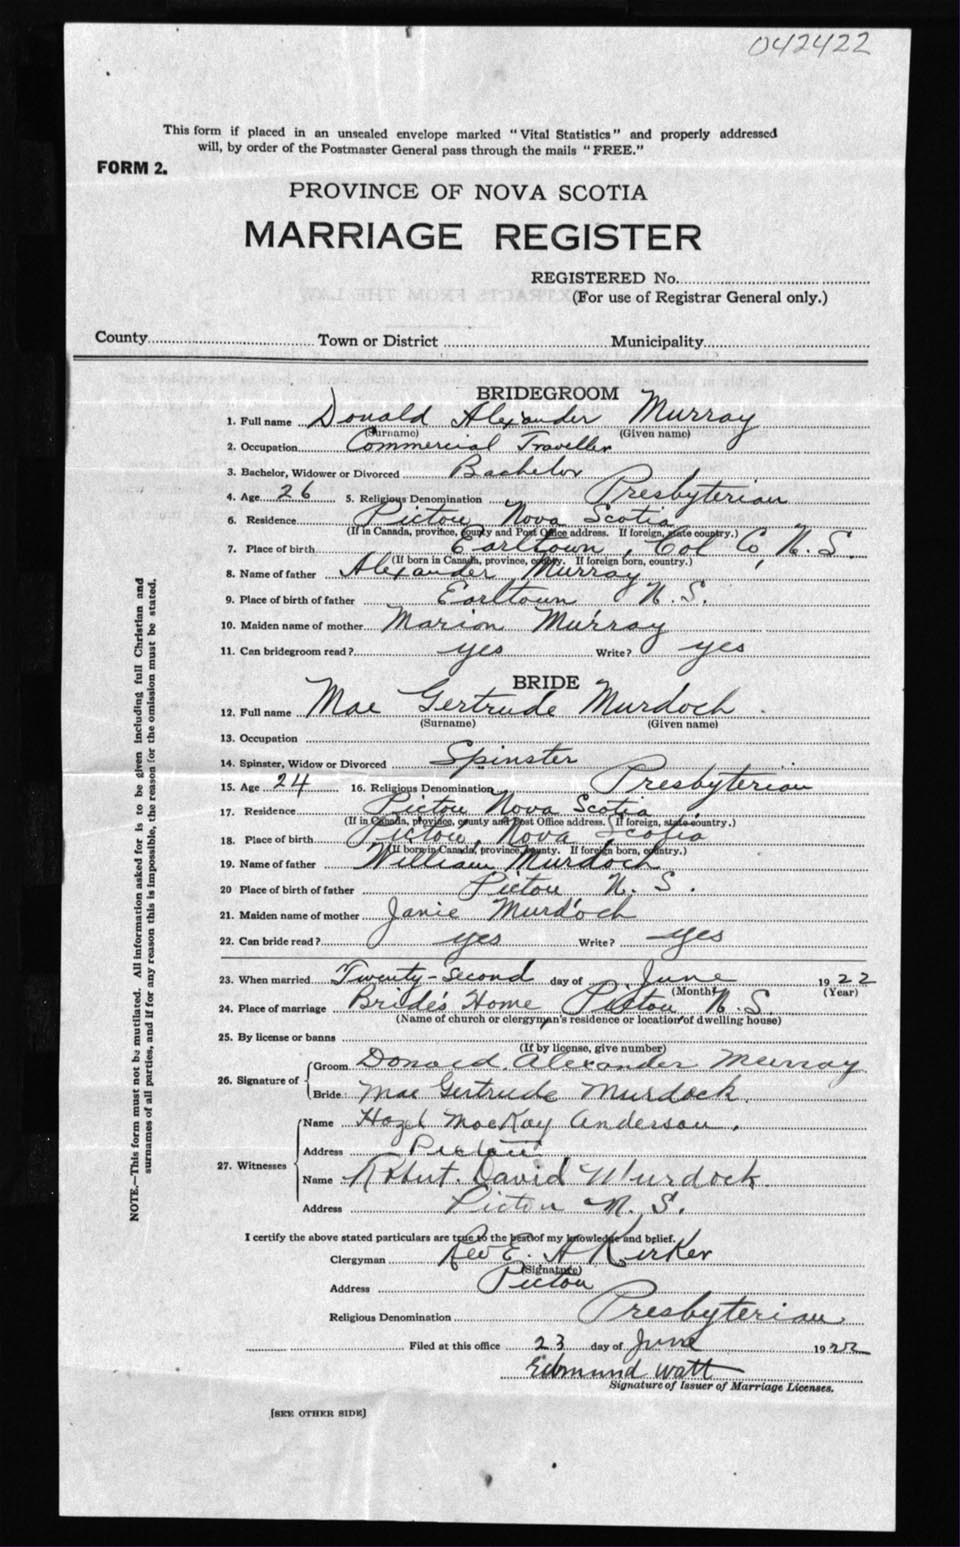 042422
This form if placed in an unsealed envelope marked "Vital Statistics" and properly addressed
will, by order of the Postmaster General pass through the mails "FREE."
FORM 2.
PROVINCE OF NOVA SCOTIA
MARRIAGE REGISTER
REGISTERED No.
(For use of Registrar General only.)
County Town or District Municipality
BRIDEGROOM
1. Full name Donald Alexander Murray
(Surname) (Given name)
2. Occupation Commercial Traveller
3. Bachelor, Widower or Divorced Bachelor
4. Age 26 5. Religious Denomination Presbyterian
6. Residence Pictou Nova Scotia
(If in Canada, province, county and Post Office address. If foreign, state country.)
7. Place of birth Earltown, Col Co, N. S.
(If born in Canada, province, county. If foreign born, country.)
8. Name of father Alexander Murray
9. Place of birth of father Earltown N. S.
10. Maiden name of mother Marion Murray
11. Can bridegroom read? yes Write? yes
BRIDE
12. Full name Mae Gertrude Murdoch
(Surname) (Given name)
13. Occupation
14. Spinster, Widow or Divorced Spinster
15. Age 24 16. Religious Denomination Presbyterian
17. Residence Pictou Nova Scotia
(If in Canada, province, county and Post Office address. If foreign, state country.)
18. Place of birth Pictou, Nova Scotia
(If born in Canada, province, county. If foreign born, country.)
19. Name of father William Murdoch
20 Place of birth of father Pictou N. S.
21. Maiden name of mother Janie Murdoch
22. Can bride read? yes Write? yes
23. When married Twenty-Second day of June 1922
(Month) (Year)
24. Place of marriage Bride's Home Pictou N. S.
(Name of church or clergyman's residence or location of dwelling house)
25. By license or banns
(If by license, give number)
26. Signature of
Groom Donald Alexander Murray
Bride Mae Gertrude Murdock.
27. Witnesses
Name Hazel MacKay Anderson.
Address Pictou
Name Robert David Murdock.
Address Pictou N. S.
I certify the above stated particulars are true to the best of my knowledge and belief.
Clergyman Rev E. A Kirker
(Signature)
Address Pictou
Religious Denomination Presbyterian
Filed at this office 23 day of June 1922
Edmund Watt
Signature of Issuer of Marriage Licenses.
[SEE OTHER SIDE]
NOTE.—This form must not be mutilated. All information asked for is to be given including full Christian and
surnames of all parties, and if for any reason this is impossible, the reason for the omission must be stated.